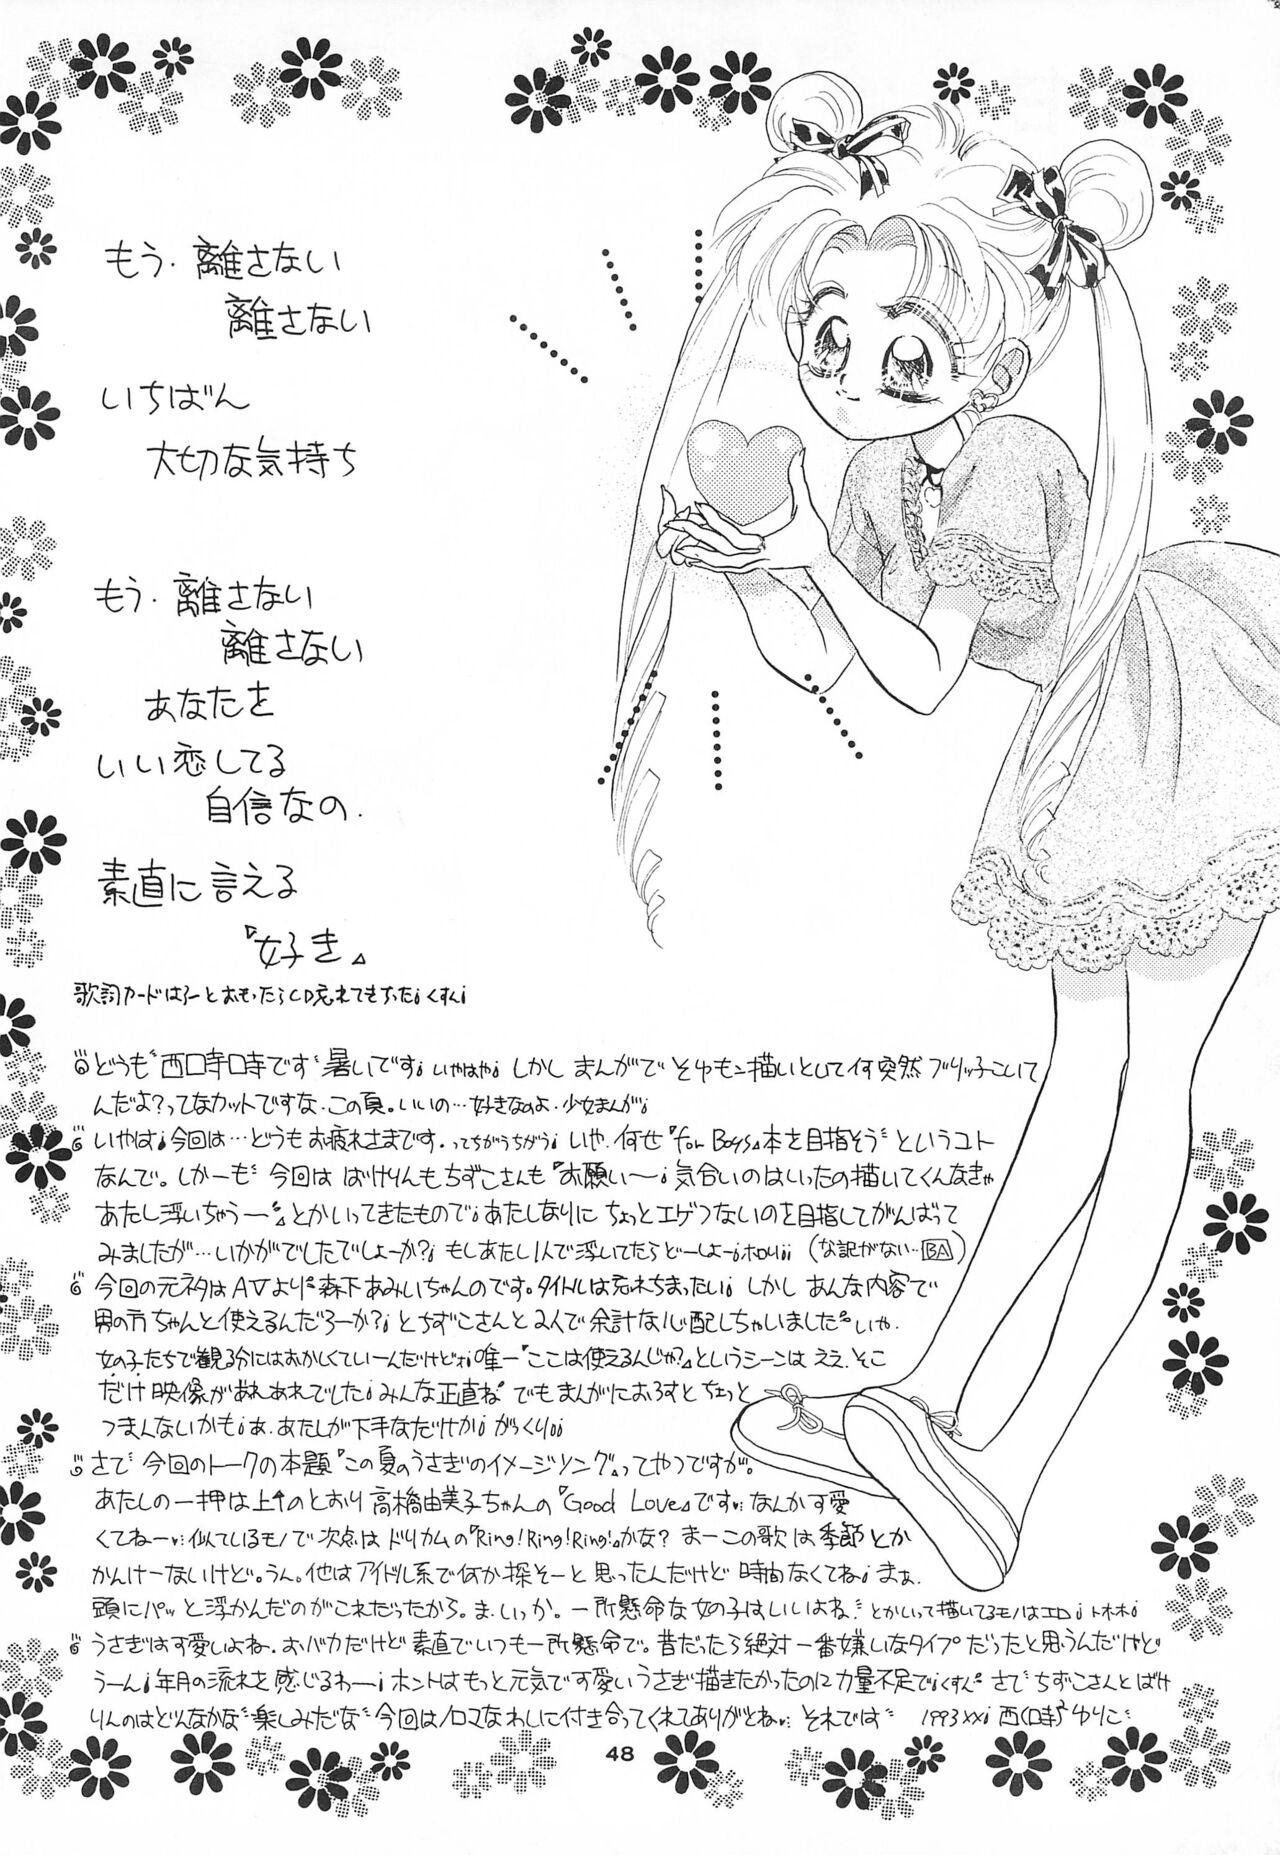 もう.離さない
離さない
いちばん
大切な気持ち
もう.離さない
離さない
あなたを
いい恋してる
自信なの.
素直に言える
『好き』
歌詞カードはろーとおもったらCD忘れてきちった¡くすん¡
どうも〝西口寺口寺です〟暑いです¡いやはや¡しかしまんがでそゆモン描いといて何突然ブリッ子こいて
んだよ?ってなカットですな.この頁。いいの…好きなのよ.少女まんが¡
いやは¡今回は…どうもお疲れさまです.ってちがうちがう¡いや.何せ『for Boys』本を目指そう〟というコト
なんで。しかーも〝今回はばけりんもちずこさんも『お願い〜¡気合いのはいったの描いてくんなきゃ
あたし浮いちゃうー〟』とかいってきたもので¡あたしなりにちょっとエゲツないのを目指してがんばって
みましたが…いかがでしたでしょーか?¡もしあたし1人で浮いてたらどーしよー¡ホロリ¡¡(な訳がない…BA)
今回の元ネタはAVより〝森下あみいちゃんのです。タイトルは忘れちまったい¡しかしあんな内容で
男の方ちゃんと使えるんだろーか?¡とちずこさんと2人で余計な心配しちゃいました〟いや.
女の子たちで観る分にはおかしくていーんだけどォ¡唯一『ここは使えるんじゃ?』というシーンはええ.そこ
だけ映像があれあれでした¡みんな正直ね〟でもまんがにおろすとちょっと
つまんないかも¡あ.あたしが下手なだけか¡がっくり¡¡
さて〝今回のトークの本題『この夏のうさぎのイメージソング』ってやつですが。
あたしの一押は上のとおり高橋由美子ちゃんの『Good Love』です…なんか可愛
くてねー…似ているモノで次点はドリカムの『Ring!Ring!Ring!』かな?まーこの歌は季節とか
かんけーないけど。うん。他はアイドル系で何か探そーと思ったんだけど時間なくてね¡まぁ.
頭にパッと浮かんだのがこれだったから。ま.いっか。一所懸命な女の子はいいよね〟とかいって描いてるモノはエロ¡トホホ¡
うさぎは可愛いよね.おバカだけど素直でいつも一所懸命で。昔だったら絶対一番嫌いなタイプだったと思うんだけど
うーん¡年月の流れを感じるわー¡ホントはもっと元気で可愛いうさぎ描きたかったのに力量不足で¡くすん〟さて〝ちずこさんとばけ
りんのはどんなかな〟楽しみだな〟今回はノロマなわしに付き合ってくれてありがとね…それでは〟 1993 xx¡
48